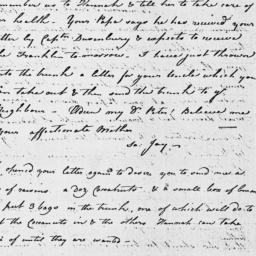 remember us to Hannah & tell her to take care of
her health. Your Papa says he has received your
letter by Capt. Dusenbury & expects to receive
Franklin tomorrow. I have just thrown
into the trunk a letter for your Uncle which you
take out & then send the trunk to
Neighbour — Adieu my Dr. Peter! Believe me
your affectionate Mother
Sa. Jay —
I opened your letter again to desire you to send me a
of raisins a doz Cocoanuts & a small box of
I put 3 bags in the trunk, one of which will do to
put the Cocoanuts in & the others Hannah can take
care of until they are wanted —